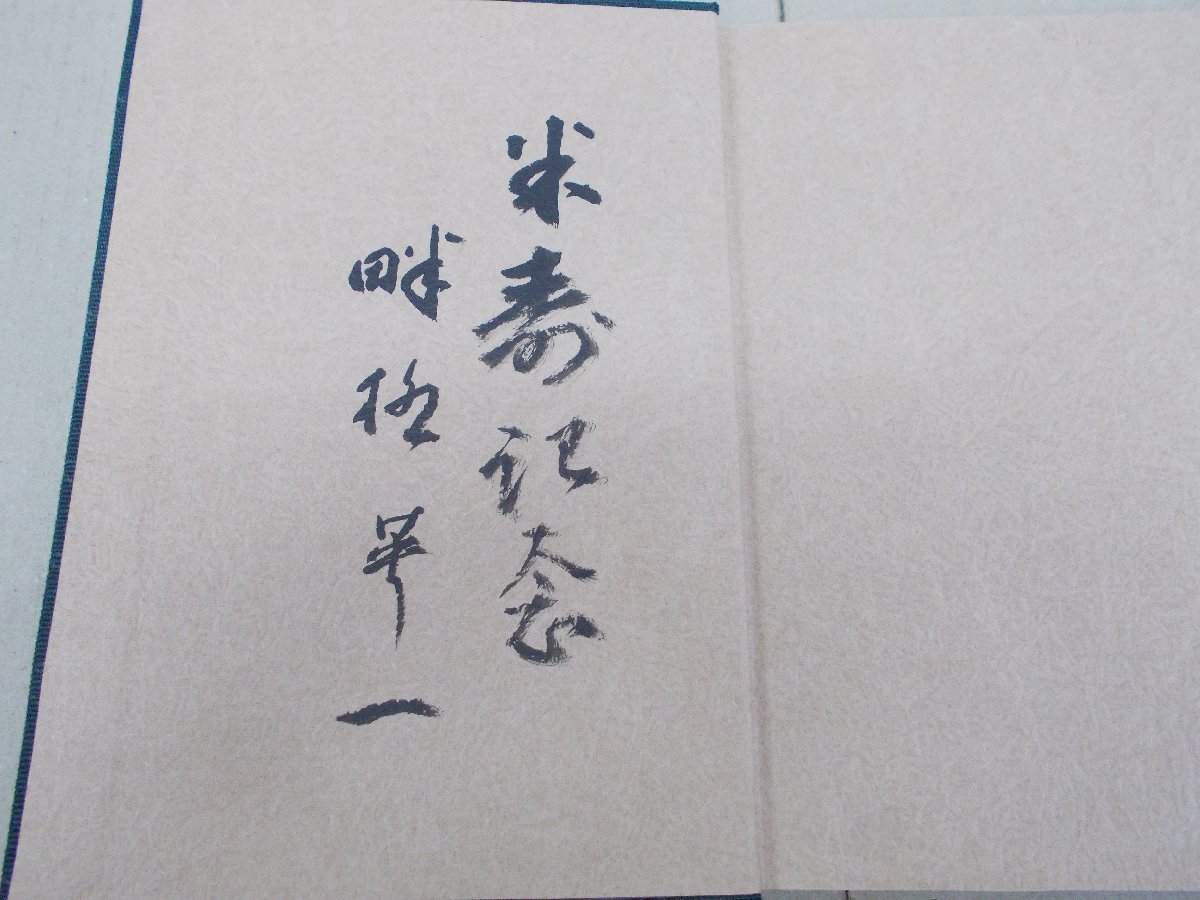 米寿記念
畔柳
一